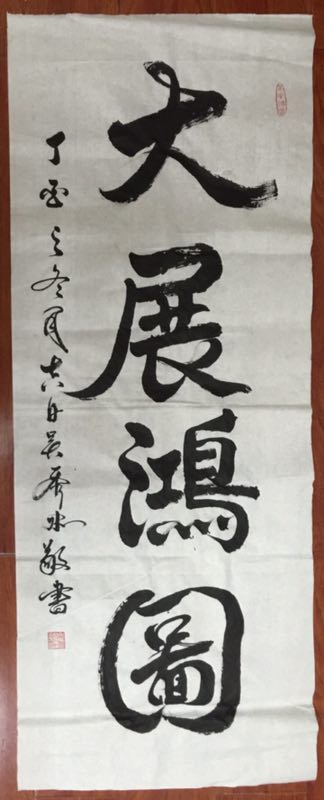 大展鴻圖
丁酉之冬月十六日吴齐冰敬書